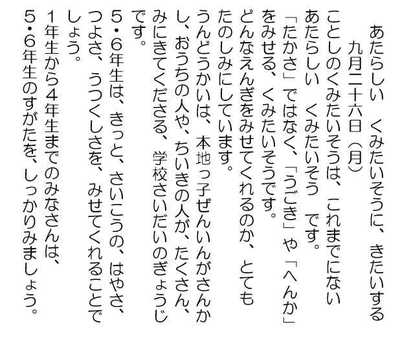 あたらしい　くみたいそうに、きたいする
九月二十六日（月）
ことしのくみたいそうは、これまでにない
あたらしい　くみたいそう　です。
「たかさ」ではなく、「うごき」や「へんか」
をみせる、くみたいそうです。
どんなえんぎをみせてくれるのか、とても
たのしみにしています。
うんどうかいは、本地っ子ぜんいんがさんか
し、おうちの人や、ちいきの人が、たくさん、
みにきてくださる、学校さいだいのぎょうじ
です。
５・６年生は、きっと、さいこうの、はやさ、
つよさ、うつくしさを、みせてくれることで
しょう。
１年生から４年生までのみなさんは、
５・６年生のすがたを、しっかりみましょう。